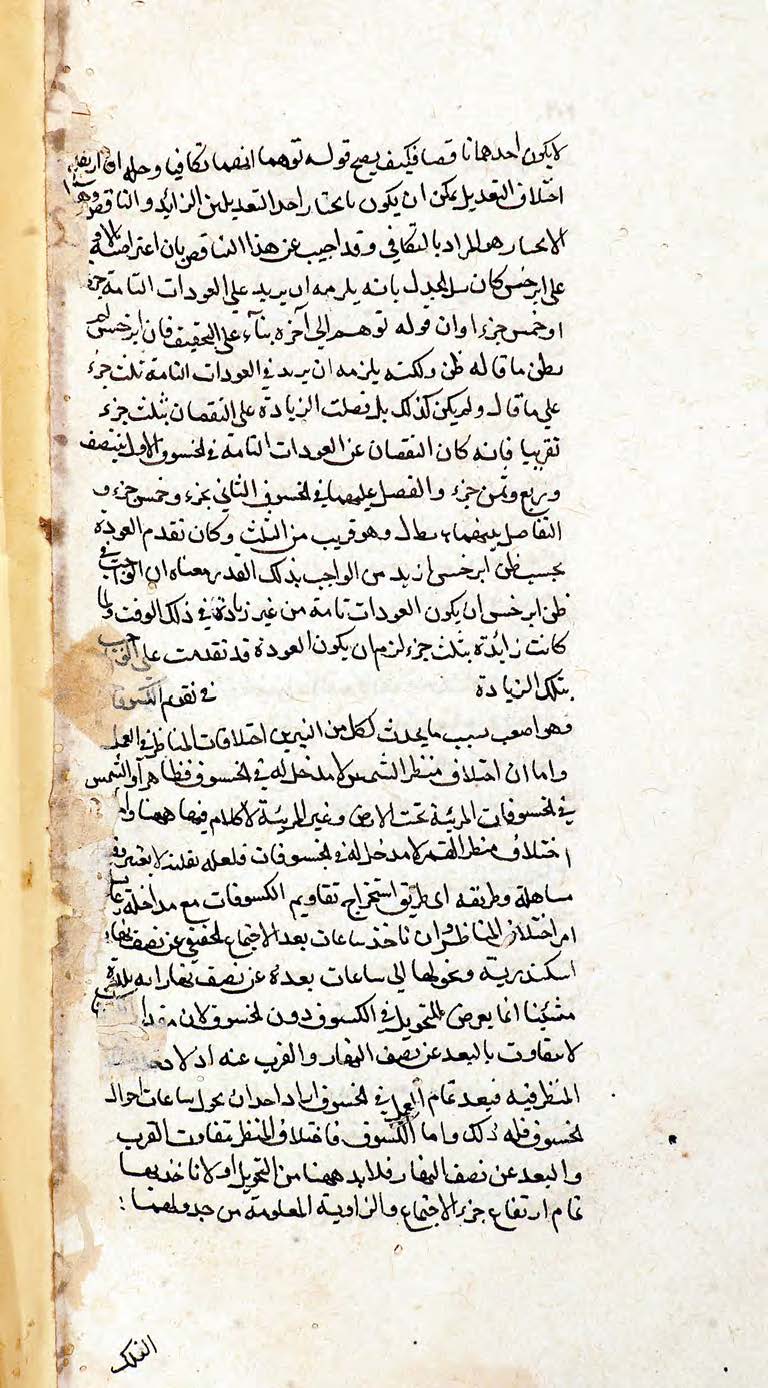 لا يكون احدهما ناقصا فكيف يصح قوله توهما انهما تكافيا وحله ان اريد
اختلاف التعديل يمكن ان يكون باعتبار احد التعديلين الزايد والناقص وهذا
الاعتبار هو المراد بالتكافي وقد اجيب عن هذا الناقص بان اعتراضه
على ابرخس كان بانه يلزمه ان يزيد على العودات التامة جزء
او خمس جزء او ان قوله توهم الى آخره بناء على التحقيق فان ابرخس لم
يظن ما قاله ظن ولكنه يلزمه ان يزيد في العودات التامة ثلث جزء
على ما قال ولم يكن كذلك بل فضلت الزيادة على النقصان بثلث جزء
تقريبا فانه كان النقصان عن العودات التامة في الخسوف الاول بنصف
وربع وثمن جزء والفصل عليهما في الخسوف الثاني بجزء وخمس جزء و
التفاضل بينهما وهو قريب من الثلث وكان تقدم العودة
بحسب ظن ابرخس ازيد من الواجب بذلك القدر معناه ان الواجب في
ظن ابرخس ان يكون العودات تامة من غير زيادة في ذلك الوقت ولما
كانت زايدة بثلث جزء لزم ان يكون العودة قد تقدمت على الواجب
بتلك الزيادة في تقويم الكسوفات
وهو اصعب بسبب ما يحدث لكل من النيرين اختلافات المناظر في العمل
واما ان اختلاف منظر الشمس لا مدخل له في الخسوف فظاهر اذ الشمس
في الخسوفات المرئية تحت الارض وغير المرئية لا كلام فيها ههنا واما
اختلاف منظر القمر لا مدخل له في الخسوفات فلعله لقلته لا يعتبر فيه
مساهلة وطريقه اى طريق استخراج تقاويم الكسوفات مع مداخلة
امر اختلاف المناظر هو ان ناخذ ساعات بعد الاجتماع الحقيقي عن نصف نهار
اسكندرية ونحولها الى ساعات بعده عن نصف نهار اية بلدة
شئنا انما يعرض للتحويل في الكسوف دون الخسوف لان مقدار
لا يتفاوت بالبعد عن نصف النهار والقرب عنه اذ لا
المنظر فيه فبعد تمام العمل في الخسوف ان اراد احد ان يحول ساعات احوال
الخسوف فله ذلك واما الكسوف فاختلاف المنظر يتفاوت القرب
والبعد عن نصف النهار فلا بد ههنا من التحويل اولا ناخذ بها
تمام ارتفاع جزء الاجتماع والزاوية المعلومة من جدولهما
الفلك